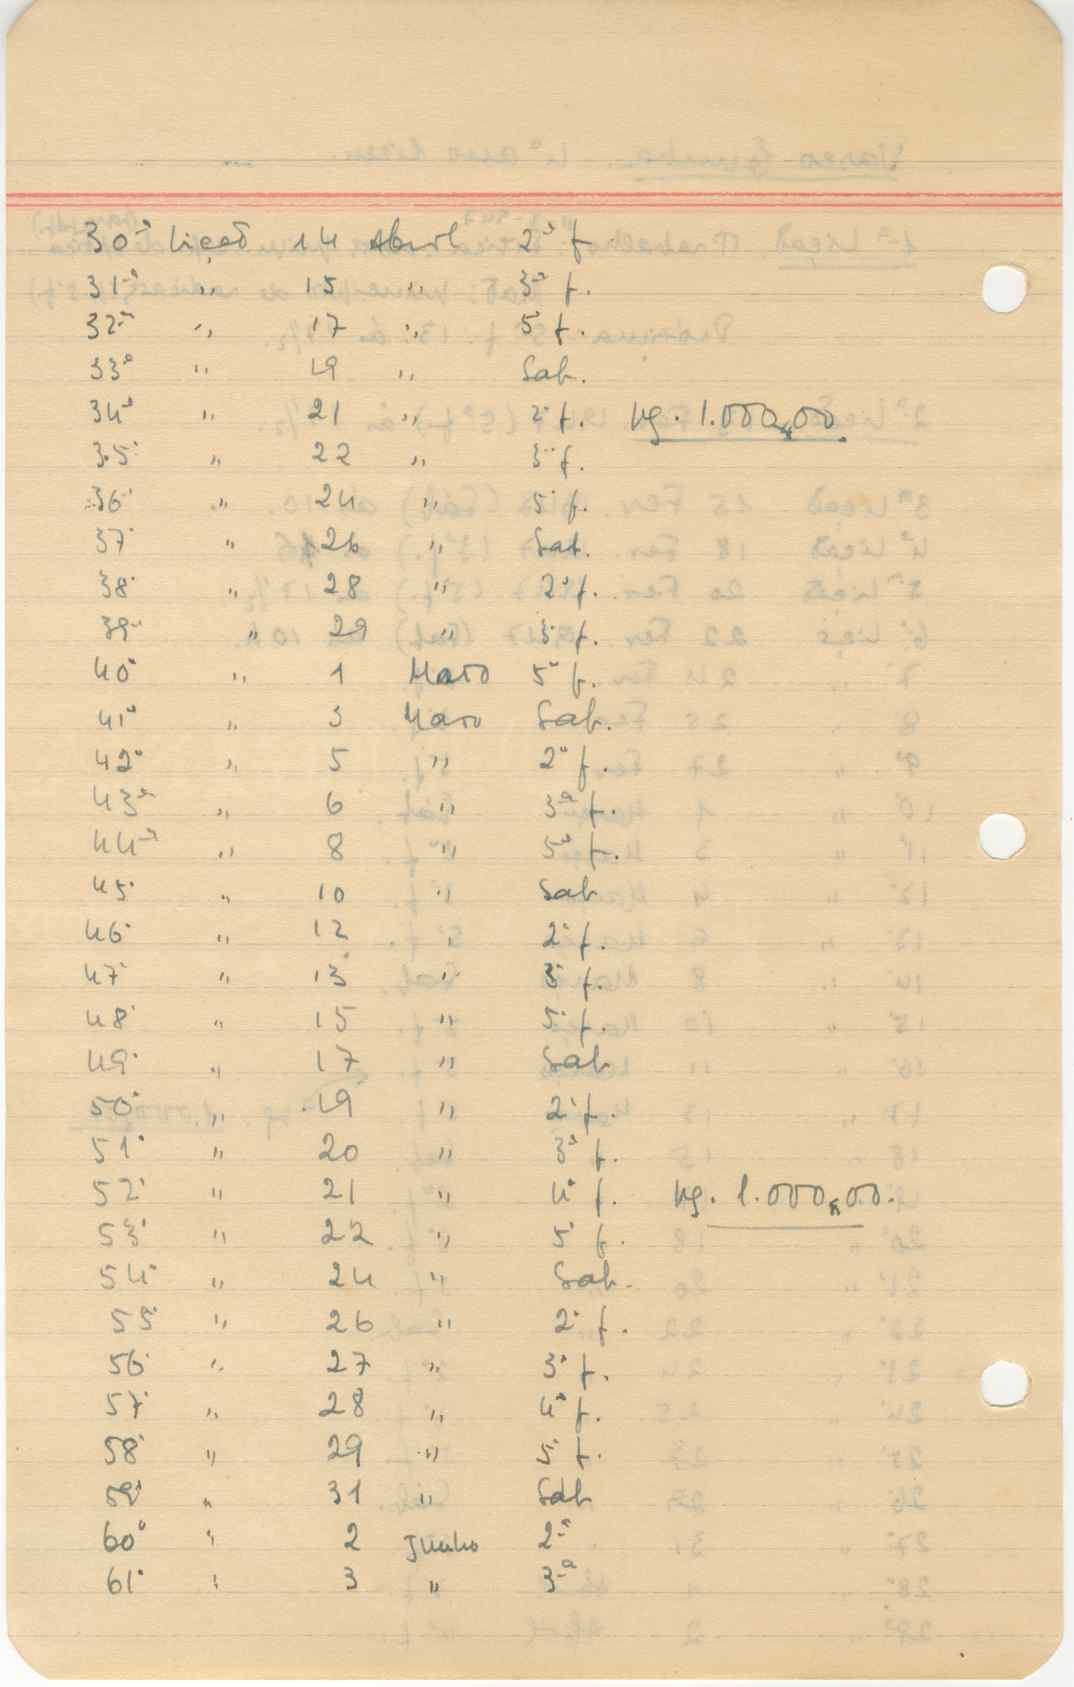 30ª Lição 14 Abril 2ª f.
31ª " 15 " 3ª f.
32ª " 17 " 5ª f.
33ª " 19 " Sab.
34ª " 21 " 2ª f. pg. 1.000,00.
35ª " 22 " 3ª f.
36ª " 24 " 5ª f.
37ª " 26 " Sab.
38ª " 28 " 2ª f.
39ª " 29 " 3ª f.
40ª " 1 Maio 5ª f.
41ª " 3 Maio Sab.
42ª " 5 " 2ª f.
43ª " 6 " 3ª f.
44ª " 8 " 5ª f.
45ª " 10 " Sab
46ª " 12 " 2ª f.
47ª " 13 " 3ª f.
48ª " 15 " 5ª f.
49ª " 17 " Sab
50ª " 19 " 2ª f.
51ª " 20 " 3ª f.
52ª " 21 " 4ª f. pg. 1.000,00.
53ª " 22 " 5ª f.
54ª " 24 " Sab.
55ª " 26 " 2ª f.
56ª " 27 " 3ª f.
57ª " 28 " 4ª f.
58ª " 29 " 5ª f.
59ª " 31 " Sab
60ª " 2 Junho 2ª
61ª " 3 " 3ª